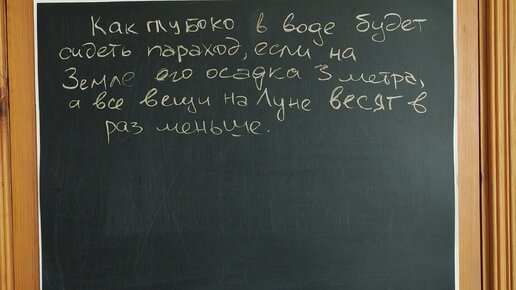 Как глубоко в воде будет
сидеть параход, если на
Земле его осадка 3 метра,
а все вещи на Луне весят в
раз меньше.